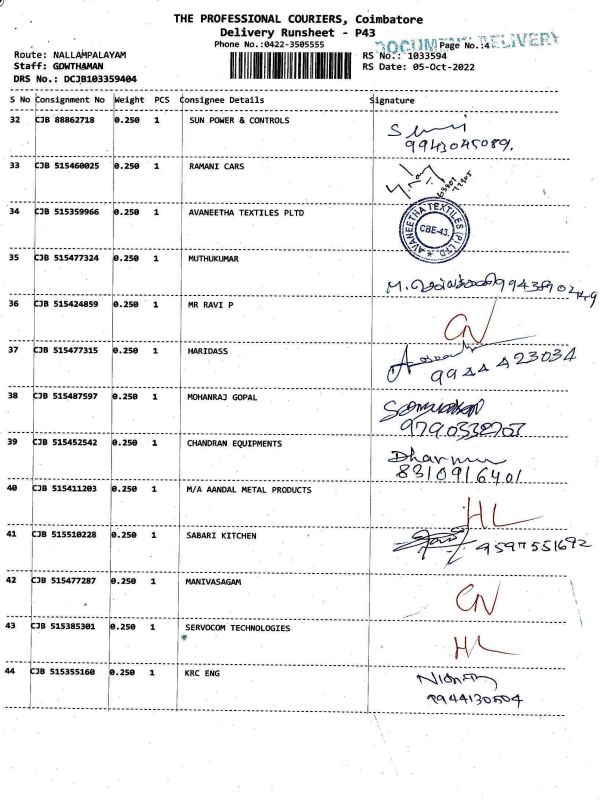 THE PROFESSIONAL COURIERS, Coimbatore
Delivery Runsheet - P43
Phone No.:0422-3505555
DOCUMENT DELIVERY
Page No.:4
Route: NALLAMPALAYAM
RS No.: 1033594
Staff: GOWTHAMAN
RS Date: 05-Oct-2022
DRS No.: DCJB103359404
S No Consignment No Weight PCS Consignee Details Signature
32 CJB 88862718 0.250 1 SUN POWER & CONTROLS
9943045089.
33 CJB 515460025 0.250 1 RAMANI CARS
34 CJB 515359966 0.250 1 AVANEETHA TEXTILES PLTD
AVANEETHA TEXTILES (P) LTD.
CBE-43.
35 CJB 515477324 0.250 1 MUTHUKUMAR
M.
36 CJB 515424859 0.250 1 MR RAVI P
CN
37 CJB 515477315 0.250 1 HARIDASS
9944423034
38 CJB 515487597 0.250 1 MOHANRAJ GOPAL
39 CJB 515452542 0.250 1 CHANDRAN EQUIPMENTS
8310916401
40 CJB 515411203 0.250 1 M/A AANDAL METAL PRODUCTS
HL
41 CJB 515510228 0.250 1 SABARI KITCHEN
9597551692
42 CJB 515477287 0.250 1 MANIVASAGAM
CN
43 CJB 515385301 0.250 1 SERVOCOM TECHNOLOGIES
HL
44 CJB 515355160 0.250 1 KRC ENG
9944130504